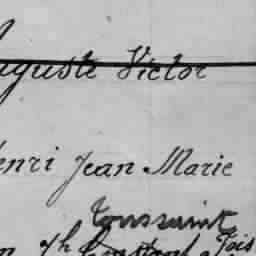 Auguste Victor
Henri Jean Marie
Toussaint